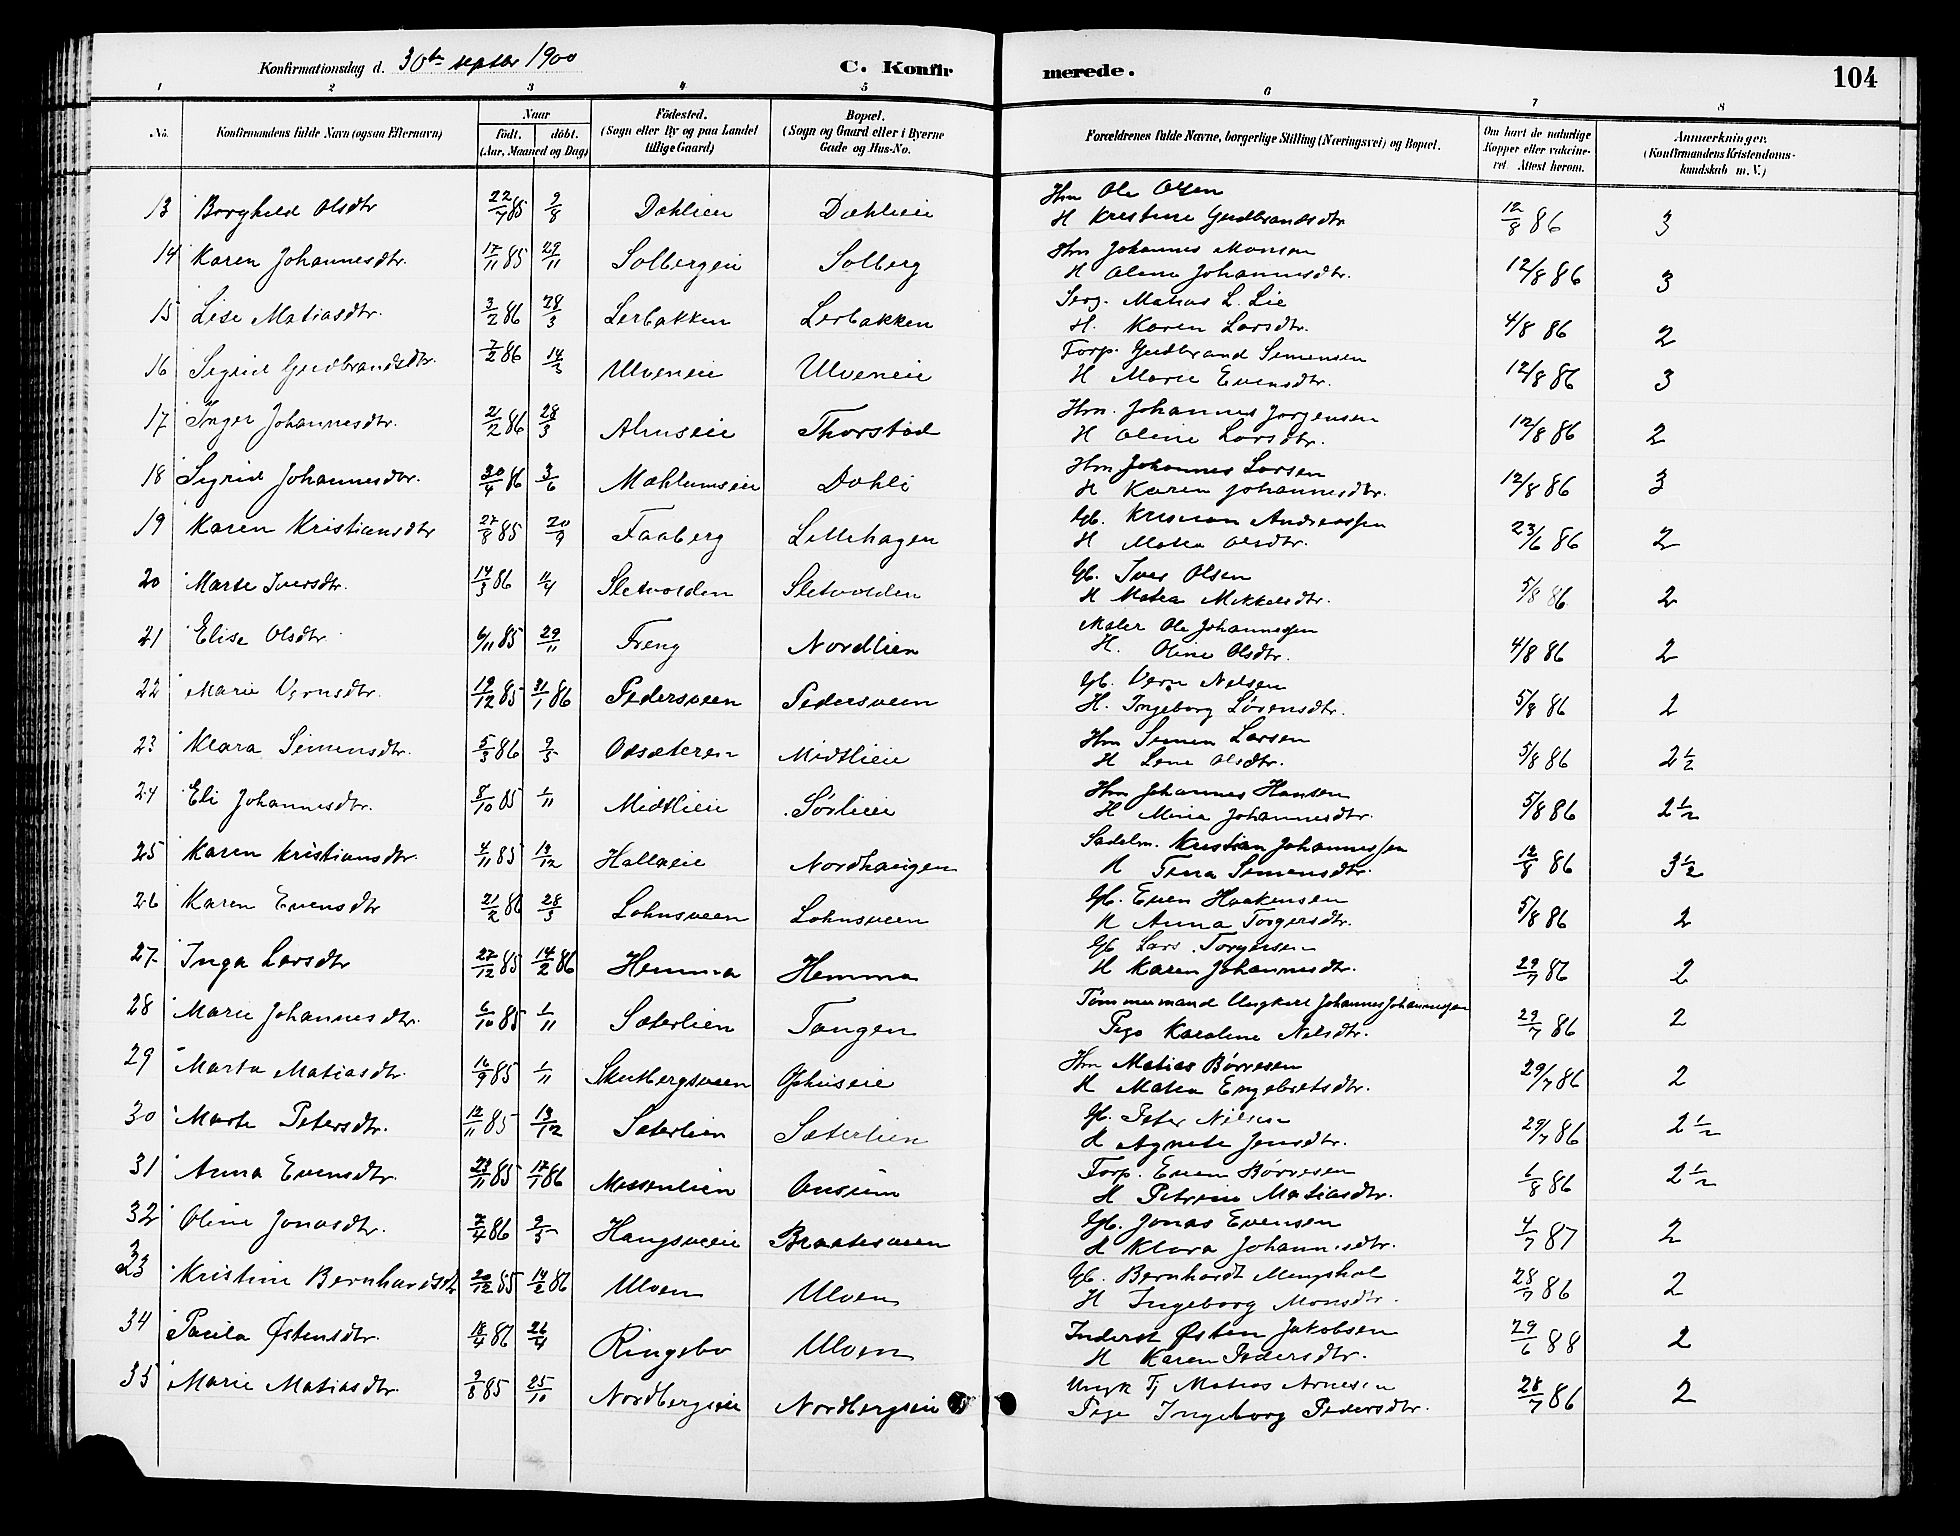 Konfirmationsdag d. 30te septbr 1900 C. Konfirmerede. 104
1 2 3 4 5 6 7 8
No. Konfirmandens fulde Navn (ogsaa Efternavn) Naar födt. döbt. (Aar, Maaned og Dag) Födested. (Sogn eller By og paa Landet tillige Gaard) Bopæl. (Sogn og Gaard eller i Byerne Gade og Hus-No. Forældrenes fulde Navne, borgerlige Stilling (Næringsvei) og Bopæl. Om havt de naturlige Kopper eller vakcineret. Attest herom. Anmærkninger. (Konfirmandens Kristendomskundskab m. V.)
13 Borghild Olsdtr 22/7 85 9/8 Dæhlien Dæhlieie Hm Ole Olsen
H Kristine Gudbrandsdtr 12/8 86 3
14 Karen Johannesdtr. 17/11 85 29/11 Solbergeie Solberg Hm Johannes Monsen
H Oline Johannesdtr. 12/8 86 3
15 Lise Matiasdtr. 3/2 86 28/3 Lerbakken Lerbakken Serg. Matias L. Lie
H. Karen Larsdtr. 4/8 86 2
16 Sigrid Gudbrandsdtr. 7/2 86 14/3 Ulveneie Ulveneie Forp. Gudbrand Simensen
H Marie Evensdtr. 12/8 86 3
17 Inger Johannesdtr. 21/2 86 28/3 Almseie Thorstad Hm. Johannes Jørgensen
H Oline Larsdtr. 12/8 86 2
18 Sigrid Johannesdtr. 30/4 86 3/6 Mæhlumseie Dahli Hm Johannes Larsen
H Karen Johannesdtr. 12/8 86 3
19 Karen Kristiansdtr 27/8 85 20/9 Faaberg Lillehagen Gb. Kristian Andreassen
H Matea Olsdtr. 23/6 86 2
20 Marte Iversdtr. 14/3 86 11/4 Sletvolden Sletvolden Gb. Iver Olsen
H Matea Mikkelsdtr. 5/8 86 2
21 Elise Olsdtr 6/11 85 29/11 Freng Nordlien Maler Ole Johannessen
H. Oline Olsdtr. 4/8 86 2
22 Marie Vernsdtr. 19/12 85 31/1 86 Pedersveen Pedersveen Gb. Vern Nilsen
H. Ingeborg Sørensdtr. 5/8 86 2
23 Klara Simensdtr. 5/3 86 9/5 Odsæteren Midtlieie Hm Simen Larsen
H Lene Olsdtr. 5/8 86 2 1/2
24 Eli Johannesdtr. 8/10 85 1/11 Midtlieie Sörlieie Hm Johannes Hansen
H Mina Johannesdtr. 5/8 86 2 1/2
25 Karen Kristiansdtr. 4/11 85 13/12 Hallaeie Nordhaugen Sadelm. Kristian Johannessen
H Tina Simensdtr. 12/8 86 3 1/2
26 Karen Evensdtr 21/2 86 28/3 Lohnsveen Lohnsveen Gb. Even Haakensen
H Anna Torgersdtr. 5/8 86 2
27 Inga Larsdtr 27/12 85 14/2 86 Hemma Hemma Gb Lars Torgersen
H Karen Johannesdtr. 29/7 86 2
28 Marie Johannesdtr. 6/10 85 1/11 Sæterlien Tangen Tømmermand Ungkarl Johannes Johannessen
Pige Karoline Nilsdtr. 29/7 86 2
29 Marta Matiasdtr. 16/9 85 1/11 Skutbergsveen Ophuseie Hm Matias Børresen
H Matea Engebretsdtr. 29/7 86 2
30 Marte Petersdtr. 12/11 85 13/12 Sæterlien Sæterlien Gb. Peter Nilsen
H Agnete Jensdtr. 29/7 86 2 1/2
31 Anna Evensdtr. 23/11 85 17/1 86 Messenlien Onsum Forp. Even Børresen
H Petrine Matiasdtr. 6/8 86 2 1/2
32 Oline Jonasdtr. 7/4 86 9/5 Haugsveeie Braatesveen Gb. Jonas Evensen
H Klara Johannesdtr. 4/7 87 2
33 Kristine Bernhardsdtr 20/12 85 14/2 86 Ulven Ulven Gb. Bernhardt Mengshol
H Ingeborg Monsdtr. 28/7 86 2
34 Paula Østensdtr. 18/4 86 26/4 Ringebo Ulven Inderst Østen Jakobsen
H Karen Pedersdtr. 29/6 88 2
35 Marie Matiasdtr. 9/8 85 25/10 Nordbergseie Nordbergseie Ungk Tj Matias Arnesen
Pige Ingeborg Pedersdtr. 28/7 86 2